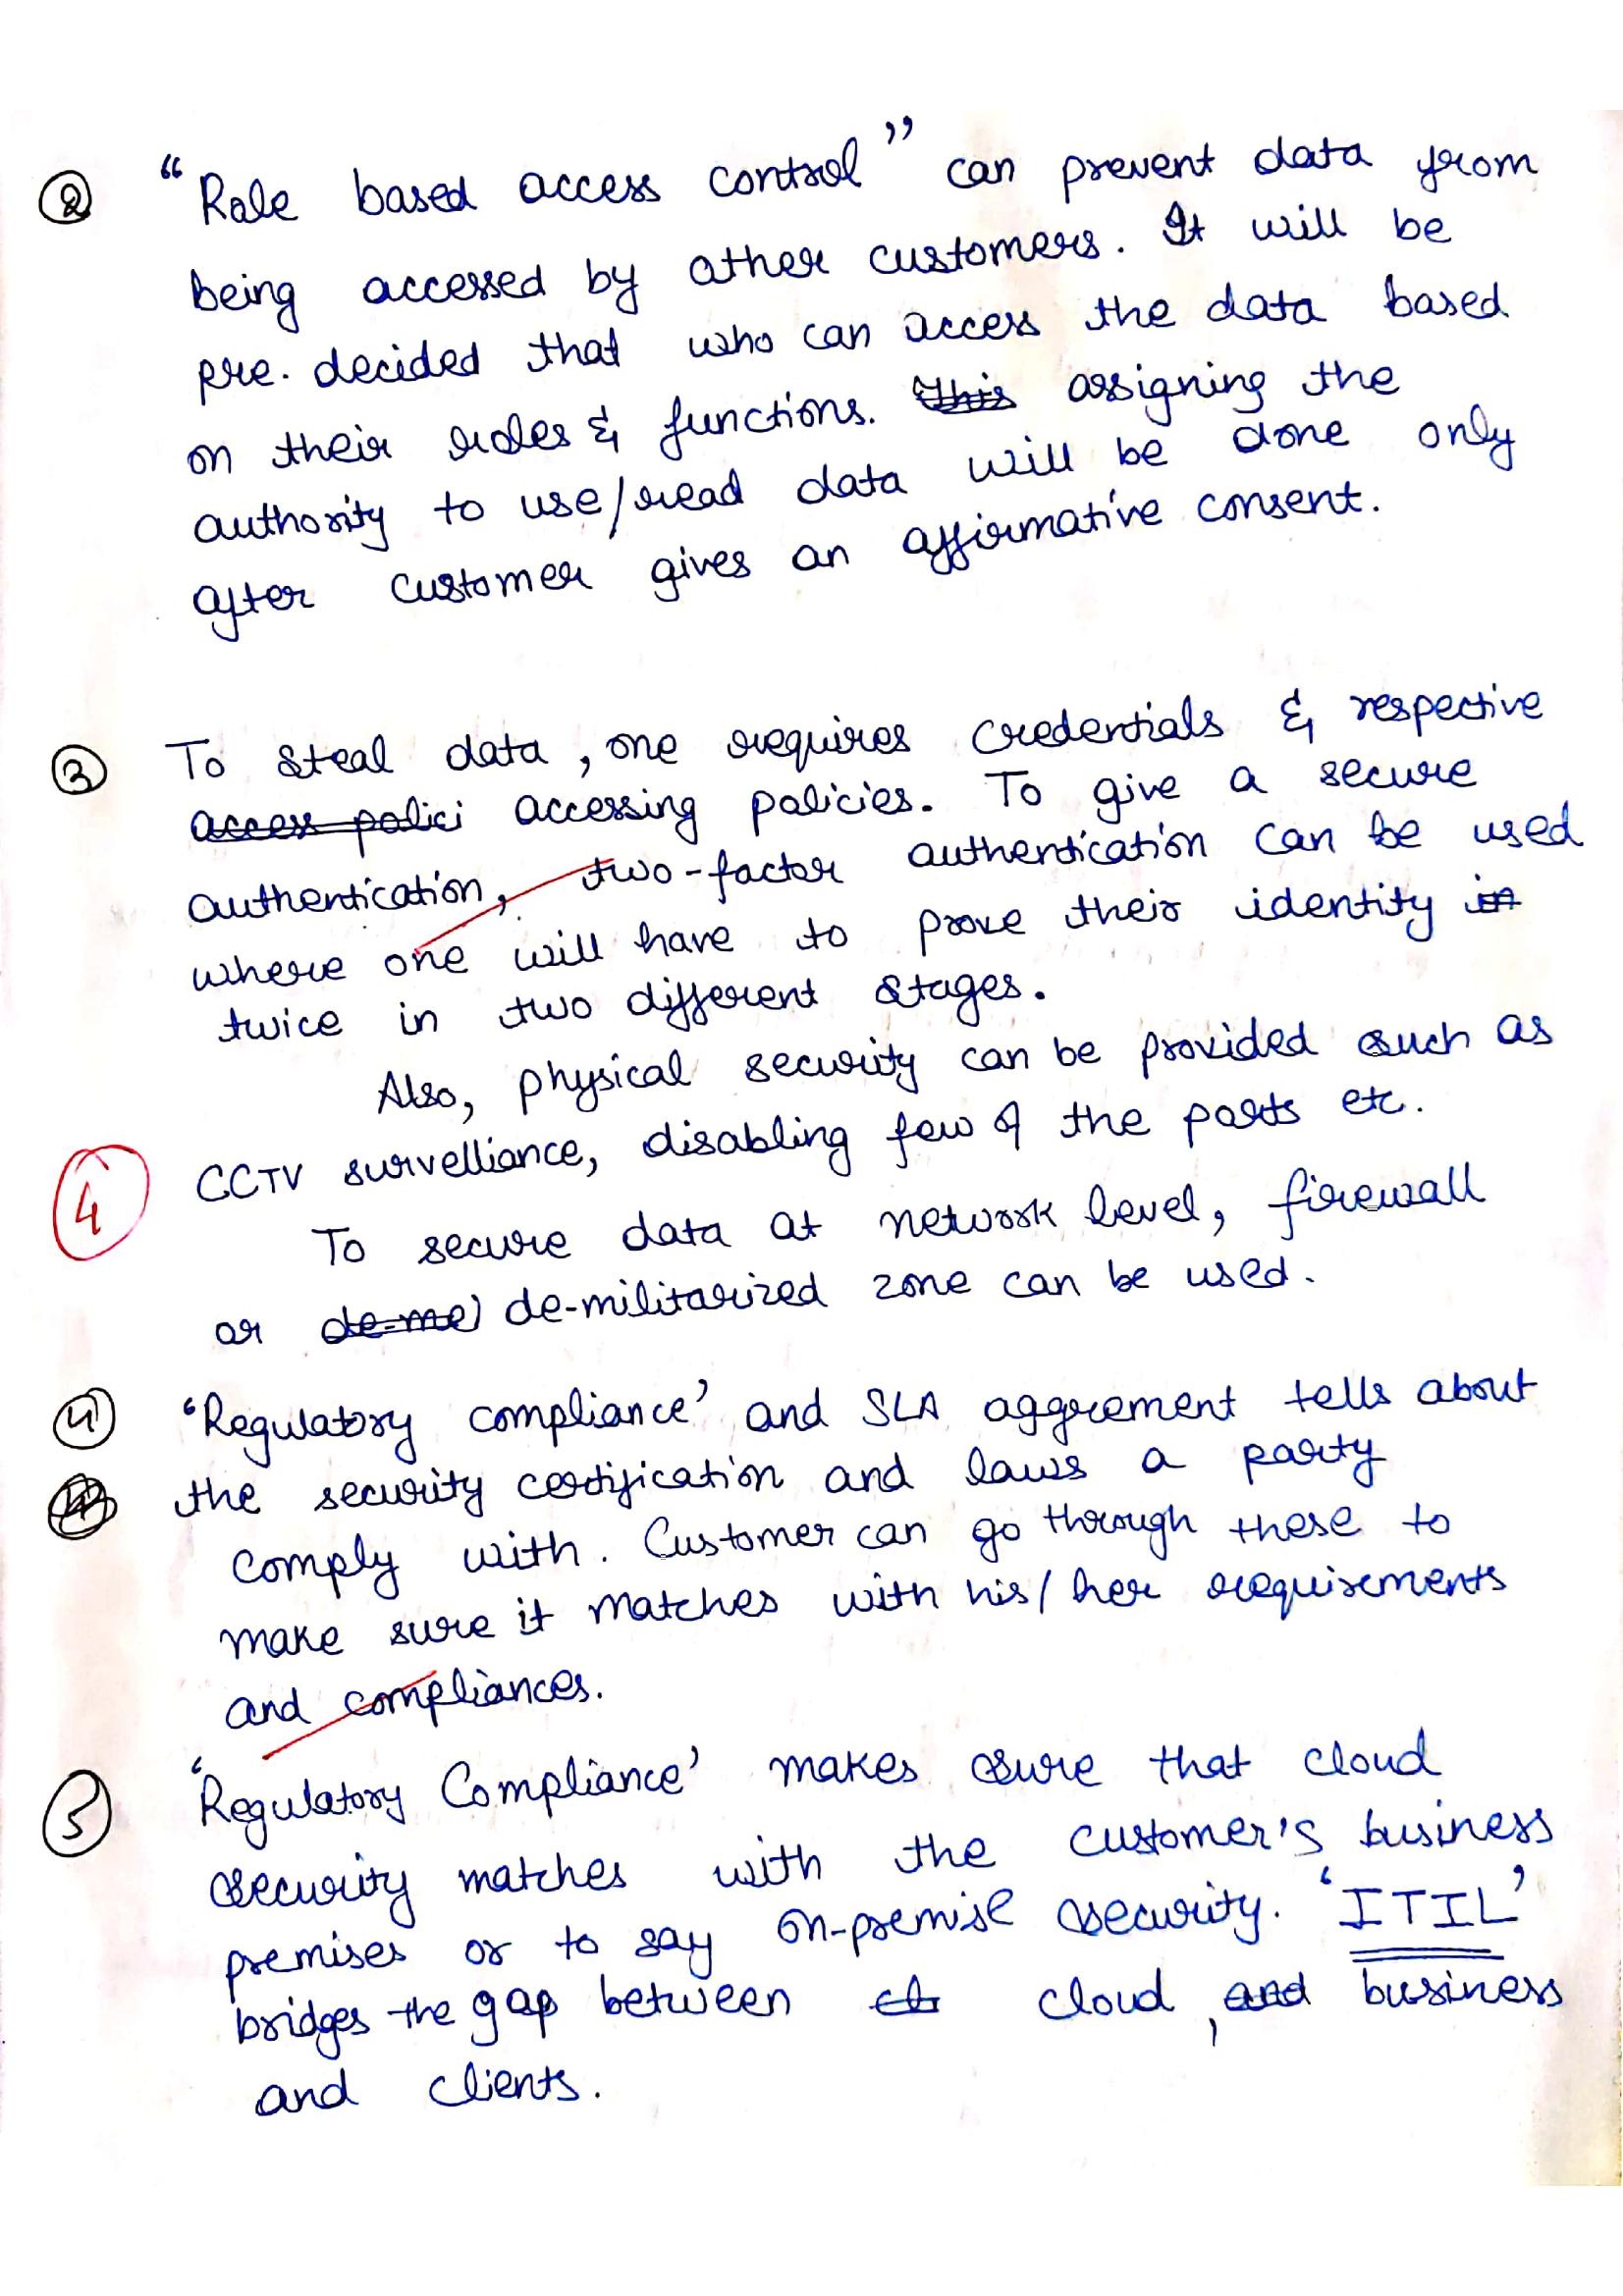 ② “Role based access control” can prevent data from
being accessed by other customers. It will be
pre. decided that who can access the data based
on their roles & functions. This assigning the
authority to use/read data will be done only
after customer gives an affirmative consent.
③ To steal data, one requires credentials & respective
access polici accessing policies. To give a secure
authentication, two-factor authentication can be used
where one will have to prove their identity in
twice in two different stages.
Also, physical security can be provided such as
CCTV survelliance, disabling few of the ports etc.
4
To secure data at network level, firewall
or de-me de-militarized zone can be used.
④ ‘Regulatory compliance’ and SLA aggrement tells about
the security certification and laws a party
comply with. Customer can go through these to
make sure it matches with his/her requirements
and compliances.
⑤ ‘Regulatory Compliance’ makes sure that cloud
security matches with the customer's business
premises or to say on-premise security. ‘ITIL’
bridges the gap between cl cloud, and business
and clients.